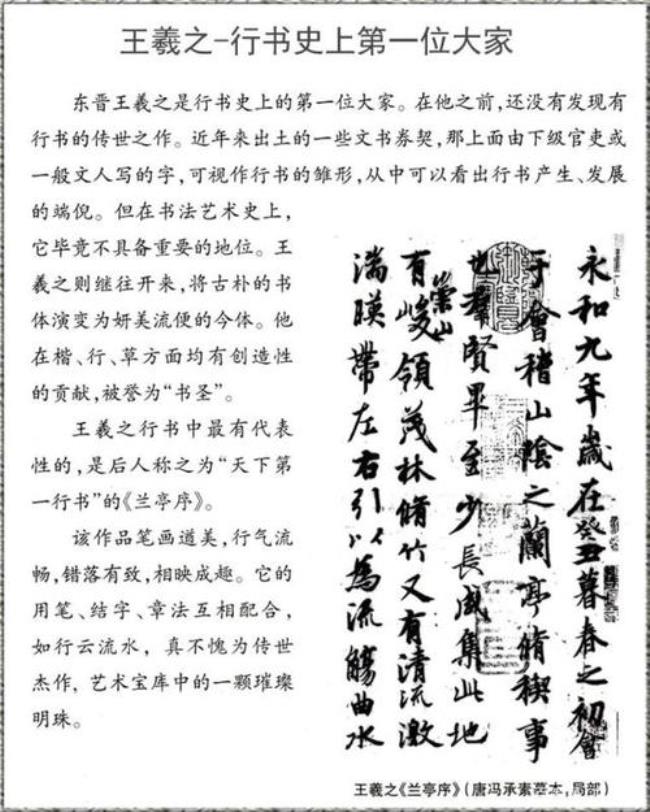 王羲之-行书史上第一位大家
东晋王羲之是行书史上的第一位大家。在他之前,还没有发现有
行书的传世之作。近年来出土的一些文书券契,那上面由下级官吏或
一般文人写的字,可视作行书的雏形,从中可以看出行书产生、发展
的端倪。但在书法艺术史上,
它毕竟不具备重要的地位。王
羲之则继往开来,将古朴的书
体演变为妍美流便的今体。他
在楷、行、草方面均有创造性
的贡献,被誉为“书圣”。
王羲之行书中最有代表
性的,是后人称之为“天下第
一行书”的《兰亭序》。
该作品笔画遒美,行气流
畅,错落有致,相映成趣。它的
用笔、结字、章法互相配合,
如行云流水，真不愧为传世
杰作，艺术宝库中的一颗璀璨
明珠。
永和九年歲在癸丑暮春之初會
于會稽山陰之蘭亭脩稧事
也羣賢畢至少長咸集此地
有崇山峻領茂林脩竹又有清流激
湍暎帶左右引以為流觴曲水
王羲之《兰亭序》(唐冯承素摹本,局部)